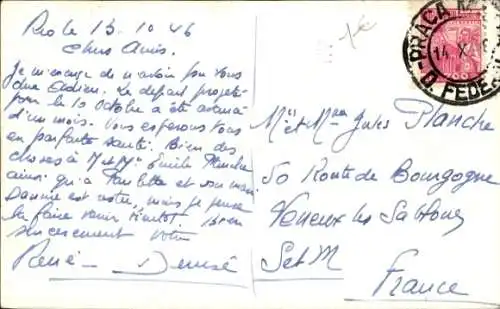 Rio le 13.10 46
Chers Amis.
Je m'excuse de n'avoir pu vous
dire Adieu. Le départ projeté
pour le 15 Octobre a été avancé
d'un mois. Vous espérons tous
en parfaite santé. Bien des
choses à M et Me Emile Planche
ainsi qu'à Paulette et son mari
est notre, mais je pense
la faire venir bientôt. Bien
sincèrement vôtre
René - Denise
PRAÇA M
14 X
D. FEDE
700
Mr et Mme Jules Planche
50 Route de Bourgogne
Veneux les Sablons
S et M
France